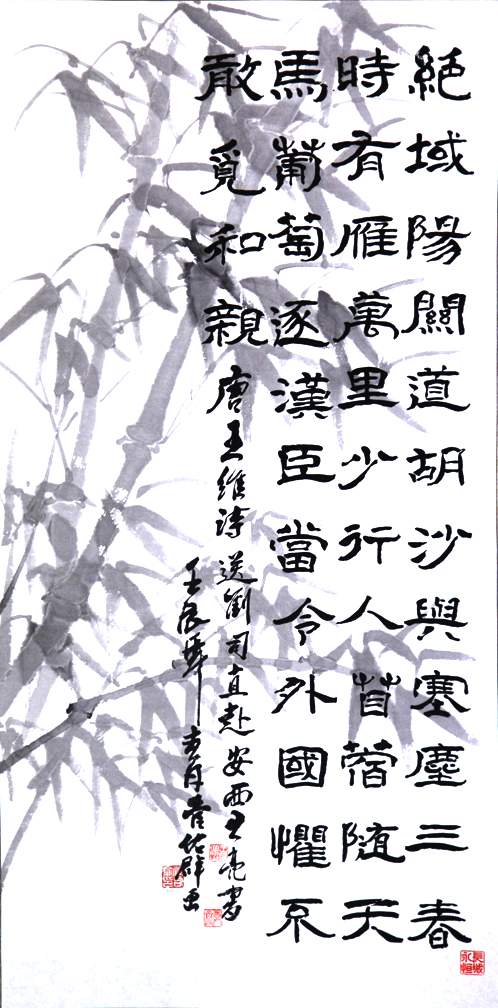 絶域陽關道胡沙與塞塵三春
時有雁萬里少行人苜蓿隨天
馬葡萄逐漢臣當令外國懼不
敢覓和親 唐王維詩送劉司直赴安西 亮書
壬辰
長城永恒